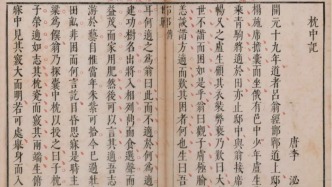 枕中記
唐李泌
開元十九年道者呂翁經邯鄲道上邸
榻施席擔囊而坐俄有邑中少年盧生
乘青駒將適於田亦止邸中與翁接席
暢久之盧生顧其衣裝弊褻乃歎曰大
世不諧而困如是乎翁曰觀子膚極腧
恙談諧方適而歎其困者何也生曰吾
耳何適之為翁曰此而不適於何為適
建功樹名出將入相列鼎而食選聲而
益茂而家用肥然後可以言其適吾志
游於藝自惟當年朱紫可拾今已過壯
田畝非困而何言訖目昏思寐是時主
粱為饌翁乃探囊中枕以授之曰子枕
子榮適如志其枕瓷而竅其兩端生俛
寐中見其竅大而明若可處舉身而入